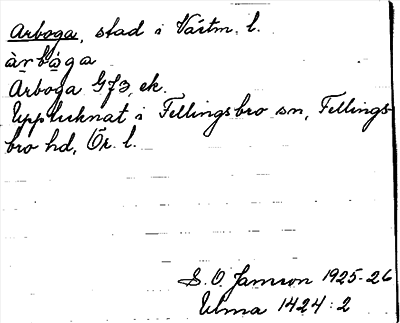 Arboga, stad i Västm. l.
àrbòga
Arboga GJ3, ek.
Upptecknat i Fellingsbro sn, Fellings-
bro hd, Ör. l.
S. O. Jamson 1925-26
Ulma 1424:2